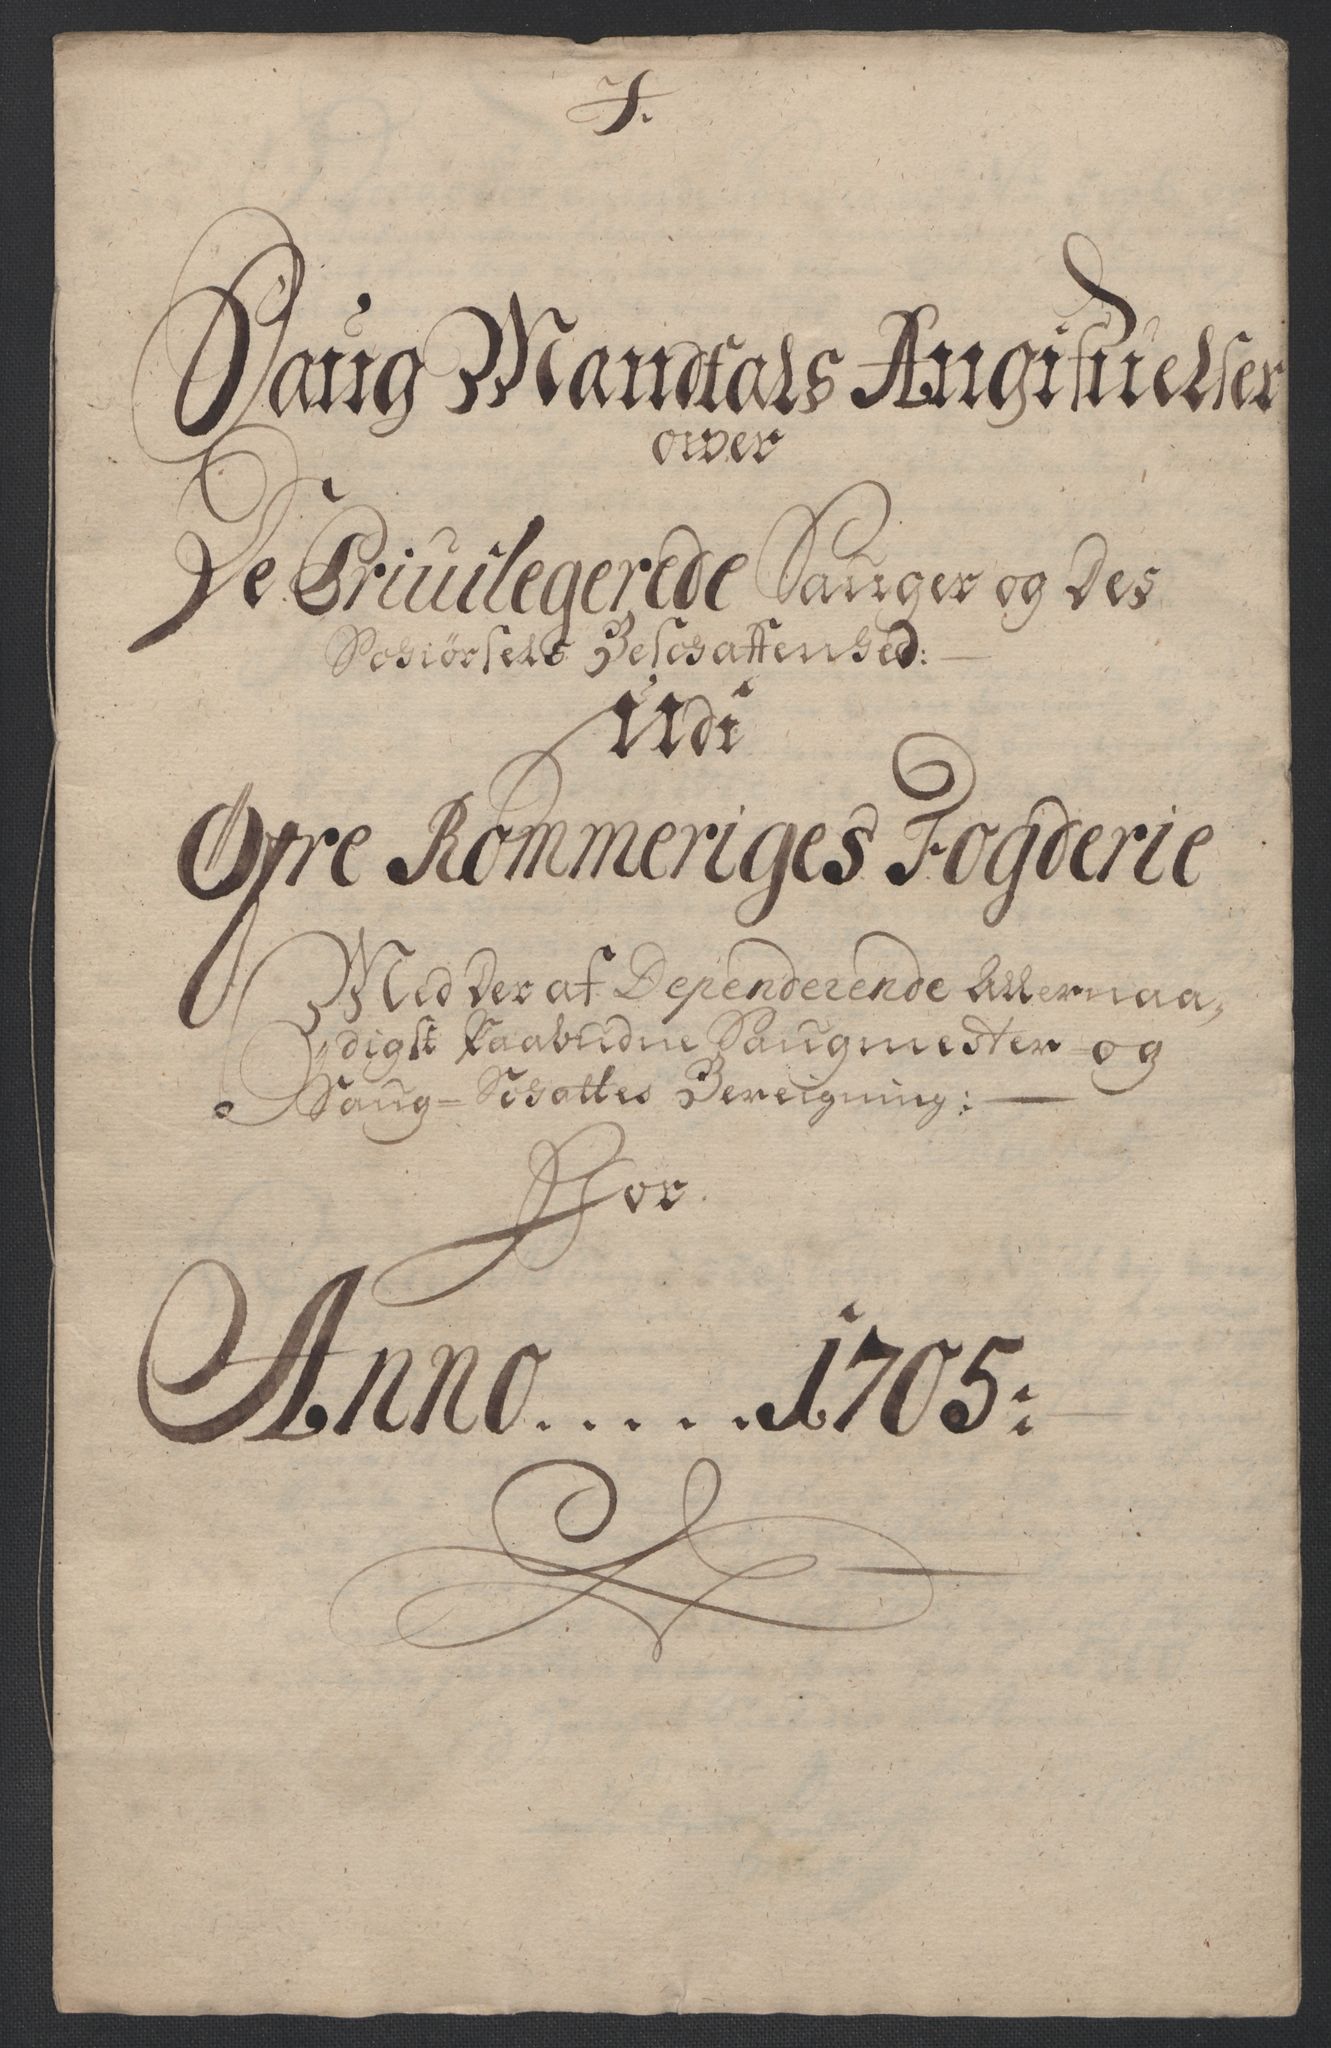 Saug Mandtals Angifuelser
over
De Priuilegerede Sauger og Des
Schiørsels Beschaffenhed:
Udi
Øfre Rommeriges Fogderie
Med Der af Dependerende Allernaa,
digst Paabudne Saugmester og
Saug-Schattes Bereigning:
For
Anno.....1705: